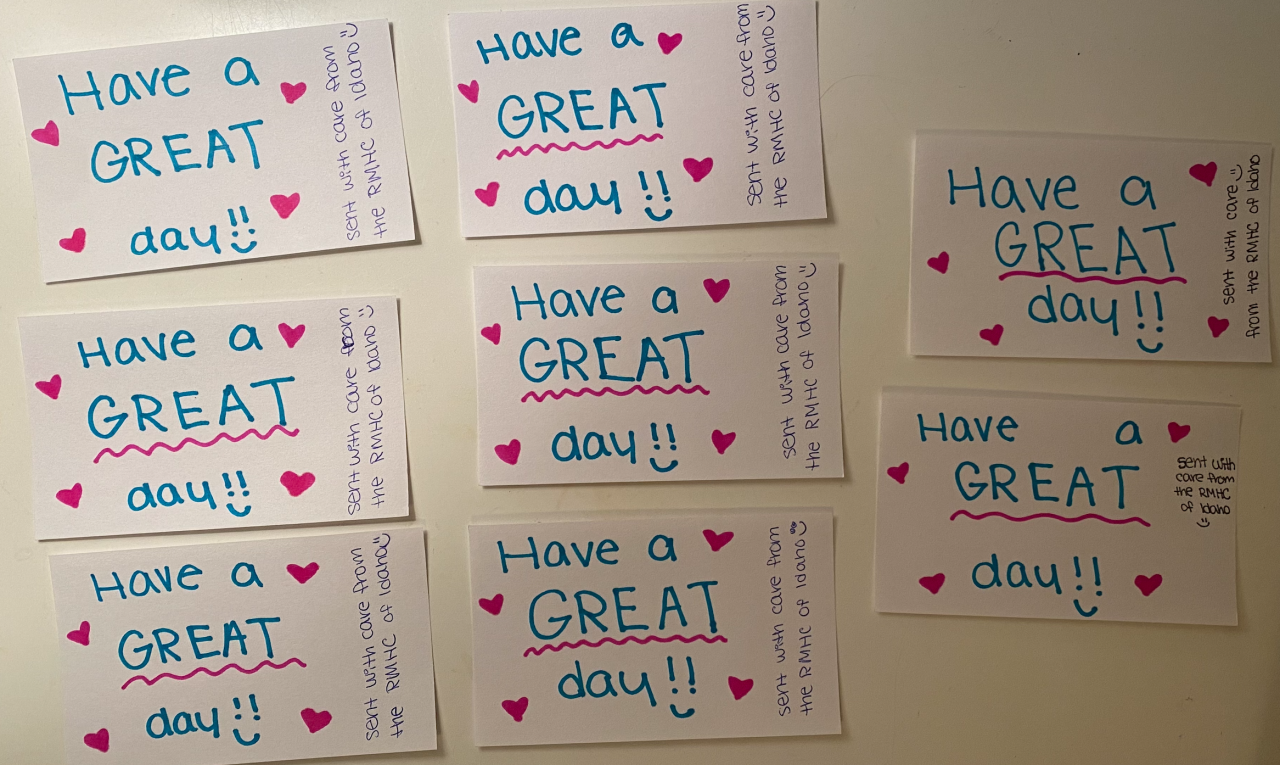 Have a
GREAT
day!!
sent with care from
the RMHC of Idaho
Have a
GREAT
day!!
sent with care from
the RMHC of Idaho
Have a
GREAT
day!!
sent with care from
the RMHC of Idaho
Have a
GREAT
day!!
sent with care from
the RMHC of Idaho
Have a
GREAT
day!!
sent with care from
the RMHC of Idaho
Have a
GREAT
day!!
sent with care from
the RMHC of Idaho
Have a
GREAT
day!!
sent with care
from the RMHC of Idaho
Have a
GREAT
day!!
sent with
care from
the RMHC
of Idaho